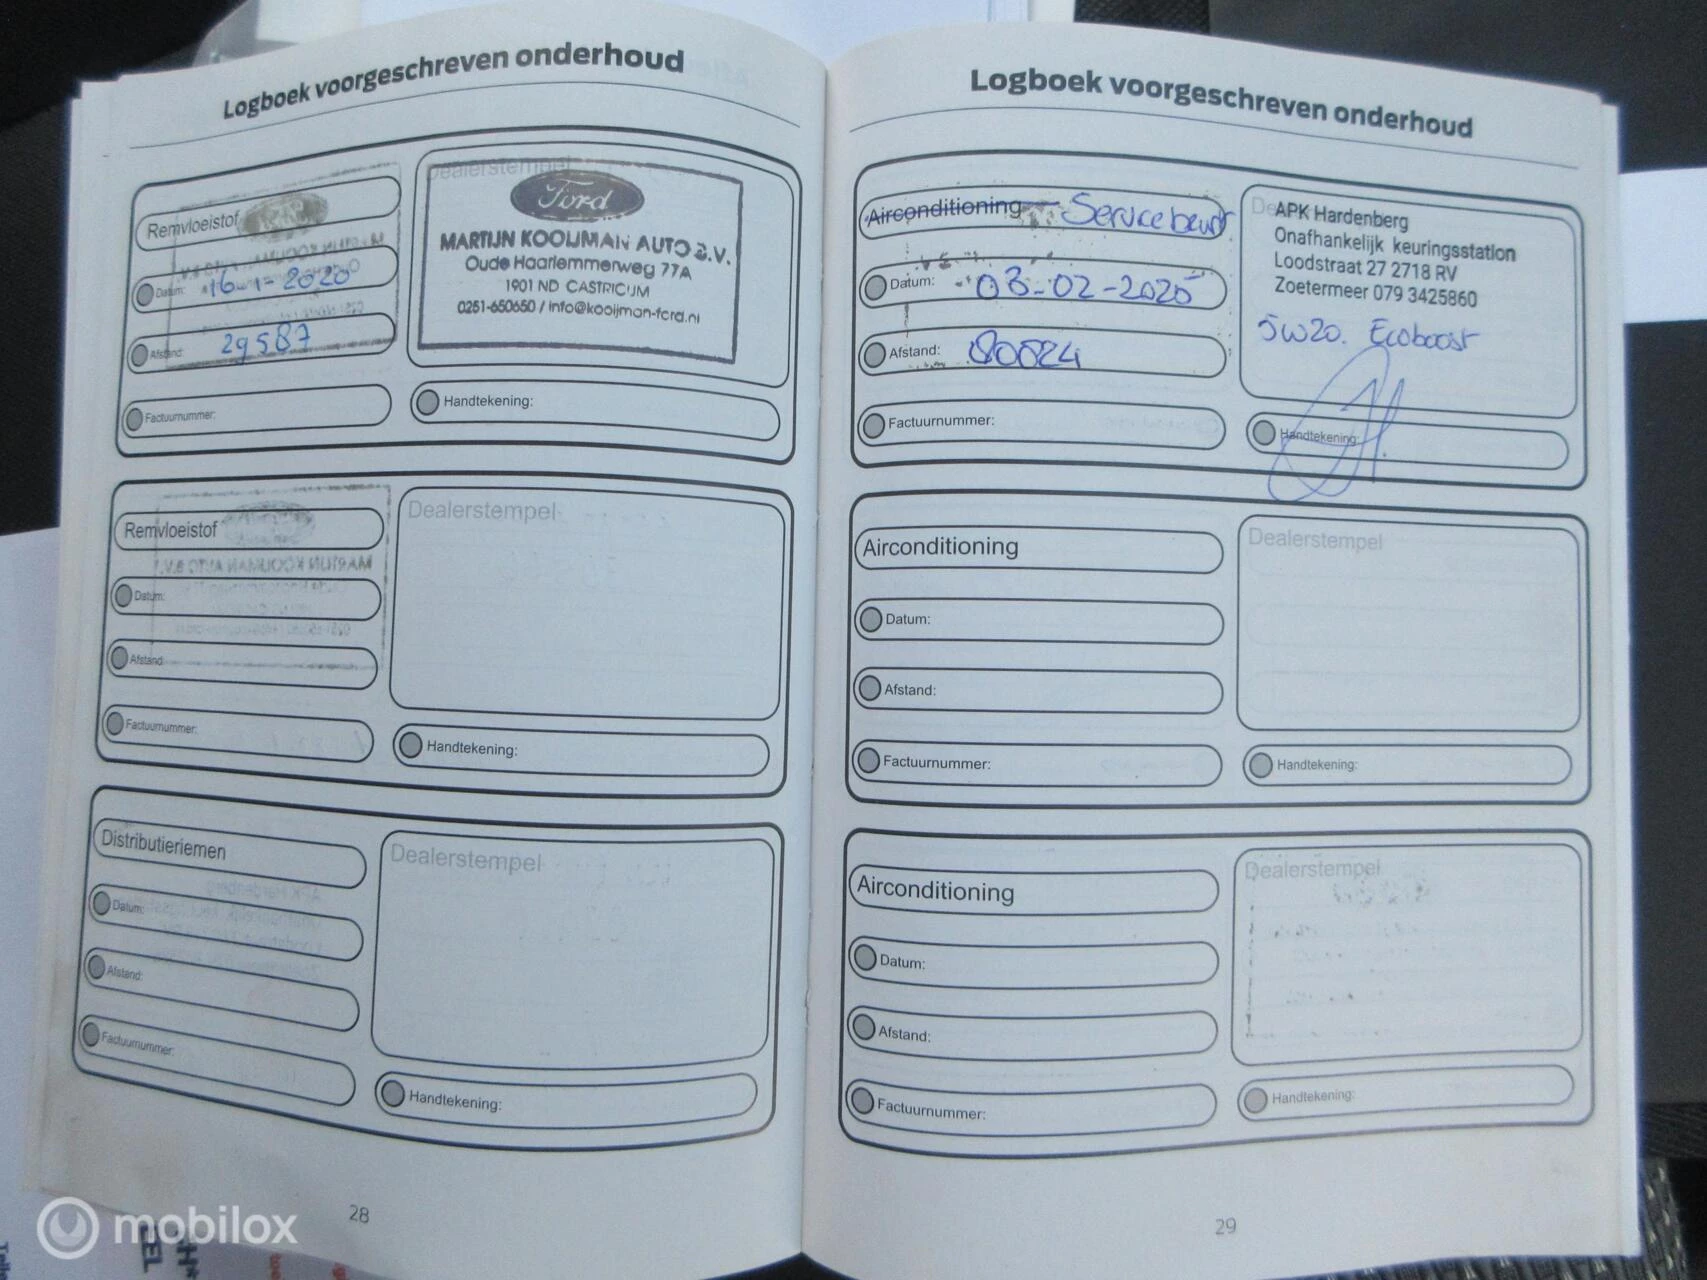 Logboek voorgeschreven onderhoud
Remvloeistof
Datum: 16-1-2020
Afstand: 29587
Factuurnummer:
Dealerstempel
Ford
MARTIJN KOOIJMAN AUTO B.V.
Oude Haarlemmerweg 77A
1901 ND CASTRICUM
0251-650650 / info@kooijman-ford.nl
Handtekening:
Remvloeistof
Datum:
Afstand:
Factuurnummer:
Dealerstempel
MARTIJN KOOIJMAN AUTO B.V.
Handtekening:
Distributieriemen
Datum:
Afstand:
Factuurnummer:
Dealerstempel
Handtekening:
28
Logboek voorgeschreven onderhoud
Airconditioning Servicebeurt
Datum: 03-02-2025
Afstand: 80024
Factuurnummer:
APK Hardenberg
Onafhankelijk keuringsstation
Loodstraat 27 2718 RV
Zoetermeer 079 3425860
5W20. Ecoboost
Handtekening:
Airconditioning
Datum:
Afstand:
Factuurnummer:
Dealerstempel
Handtekening:
Airconditioning
Datum:
Afstand:
Factuurnummer:
Dealerstempel
Handtekening:
29
mobilox